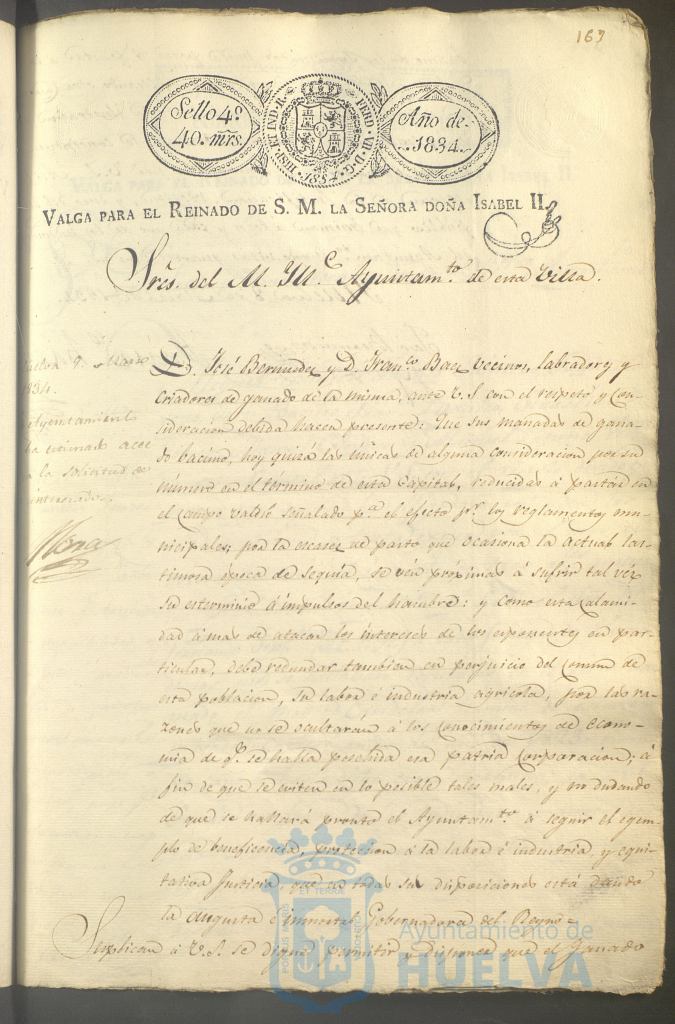 163
Sello 4º
40. mrs.
HISP. ET IND. R. FERD. VII. D. G. 1834
Año de
1834.
VALGA PARA EL REINADO DE S. M. LA SEÑORA DOÑA ISABEL II.
Sres. del M. Ille Ayuntamto. de esta Villa.
Huelva 9. Marzo
1834.
El Ayuntamiento
a la solicitud de
interesados.
D. José Bermudez y D. Franco. Baez vecinos, labradores y
criadores de ganado de la misma, ante V. S con el respeto y con-
sideracion debida hacen presente: Que sus manadas de gana-
do bacuno, hoy quizá las únicas de alguna consideracion por su
numero en el término de esta Capital, reducidas á pastar en
el campo valdio señalado pa. el efecto pr. los reglamentos mu-
nicipales; por la escasez de pasto que ocasiona la actual las-
timosa época de sequia, se ven próximas á sufrir tal vez
su esterminio á impulsos del hambre: y como esta calami-
dad á mas de atacar los intereses de los esponentes en par-
ticular, debe redundar tambien en perjuicio del comun de
esta poblacion, su labor é industria agricola, por las ra-
zones que no se ocultarán á los conocimientos de econo-
mia de qe. se halla posehida esa patria Corporacion; á
fin de que se eviten en lo posible tales males, y no dudando
de que se hallará pronto el Ayuntamto. á seguir el egem-
plo de beneficencia, proteccion á la labor é industria y equi-
tativa Justicia, que en todas sus disposiciones está dando
la augusta é inmortal Gobernadora del Reyno =
Suplican á V. S. se digne permitir y disponer que el Ganado
Ayuntamiento de
HUELVA